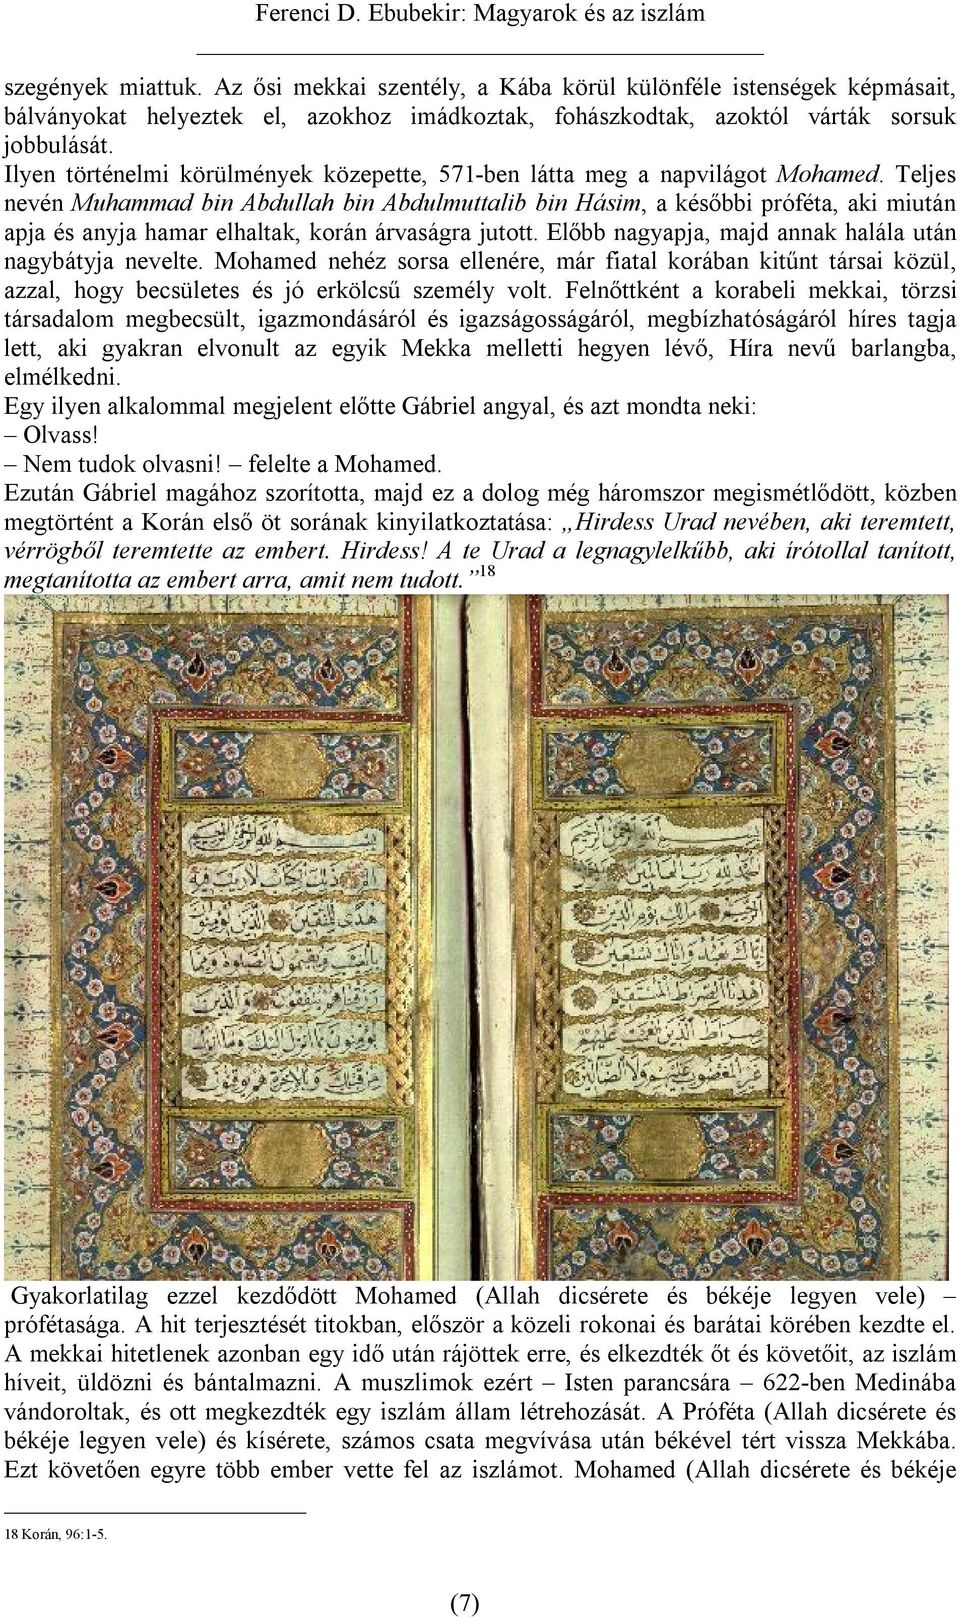 Ferenci D. Ebubekir: Magyarok és az iszlám
szegények miattuk. Az ősi mekkai szentély, a Kába körül különféle istenségek képmásait,
bálványokat helyeztek el, azokhoz imádkoztak, fohászkodtak, azoktól várták sorsuk
jobbulását.
Ilyen történelmi körülmények közepette, 571-ben látta meg a napvilágot Mohamed. Teljes
nevén Muhammad bin Abdullah bin Abdulmuttalib bin Hásim, a későbbi próféta, aki miután
apja és anyja hamar elhaltak, korán árvaságra jutott. Előbb nagyapja, majd annak halála után
nagybátyja nevelte. Mohamed nehéz sorsa ellenére, már fiatal korában kitűnt társai közül,
azzal, hogy becsületes és jó erkölcsű személy volt. Felnőttként a korabeli mekkai, törzsi
társadalom megbecsült, igazmondásáról és igazságosságáról, megbízhatóságáról híres tagja
lett, aki gyakran elvonult az egyik Mekka melletti hegyen lévő, Híra nevű barlangba,
elmélkedni.
Egy ilyen alkalommal megjelent előtte Gábriel angyal, és azt mondta neki:
– Olvass!
– Nem tudok olvasni! – felelte a Mohamed.
Ezután Gábriel magához szorította, majd ez a dolog még háromszor megismétlődött, közben
megtörtént a Korán első öt sorának kinyilatkoztatása: „Hirdess Urad nevében, aki teremtett,
vérrögből teremtette az embert. Hirdess! A te Urad a legnagylelkűbb, aki írótollal tanított,
megtanította az embert arra, amit nem tudott.”18
بسم الله الرحمن الرحيم
الحمد لله رب العالمين
الرحيم مالك يوم الدين
اياك نعبد واياك نستعين
اهدنا الصراط المستقيم
صراط الذين انعمت عليهم
غير المغضوب عليهم ولا الضالين
بسم الله الرحمن الرحيم
الم ذلك الكتاب لا ريب فيه
هدى للمتقين الذين يؤمنون
بالغيب ويقيمون الصلوة ومما
رزقناهم ينفقون والذين
يؤمنون بما انزل اليك وما انزل
من قبلك وبالاخرة هم يوقنون
Gyakorlatilag ezzel kezdődött Mohamed (Allah dicsérete és békéje legyen vele) –
prófétasága. A hit terjesztését titokban, először a közeli rokonai és barátai körében kezdte el.
A mekkai hitetlenek azonban egy idő után rájöttek erre, és elkezdték őt és követőit, az iszlám
híveit, üldözni és bántalmazni. A muszlimok ezért – Isten parancsára – 622-ben Medinába
vándoroltak, és ott megkezdték egy iszlám állam létrehozását. A Próféta (Allah dicsérete és
békéje legyen vele) és kísérete, számos csata megvívása után békével tért vissza Mekkába.
Ezt követően egyre több ember vette fel az iszlámot. Mohamed (Allah dicsérete és békéje
18 Korán, 96:1-5.
(7)